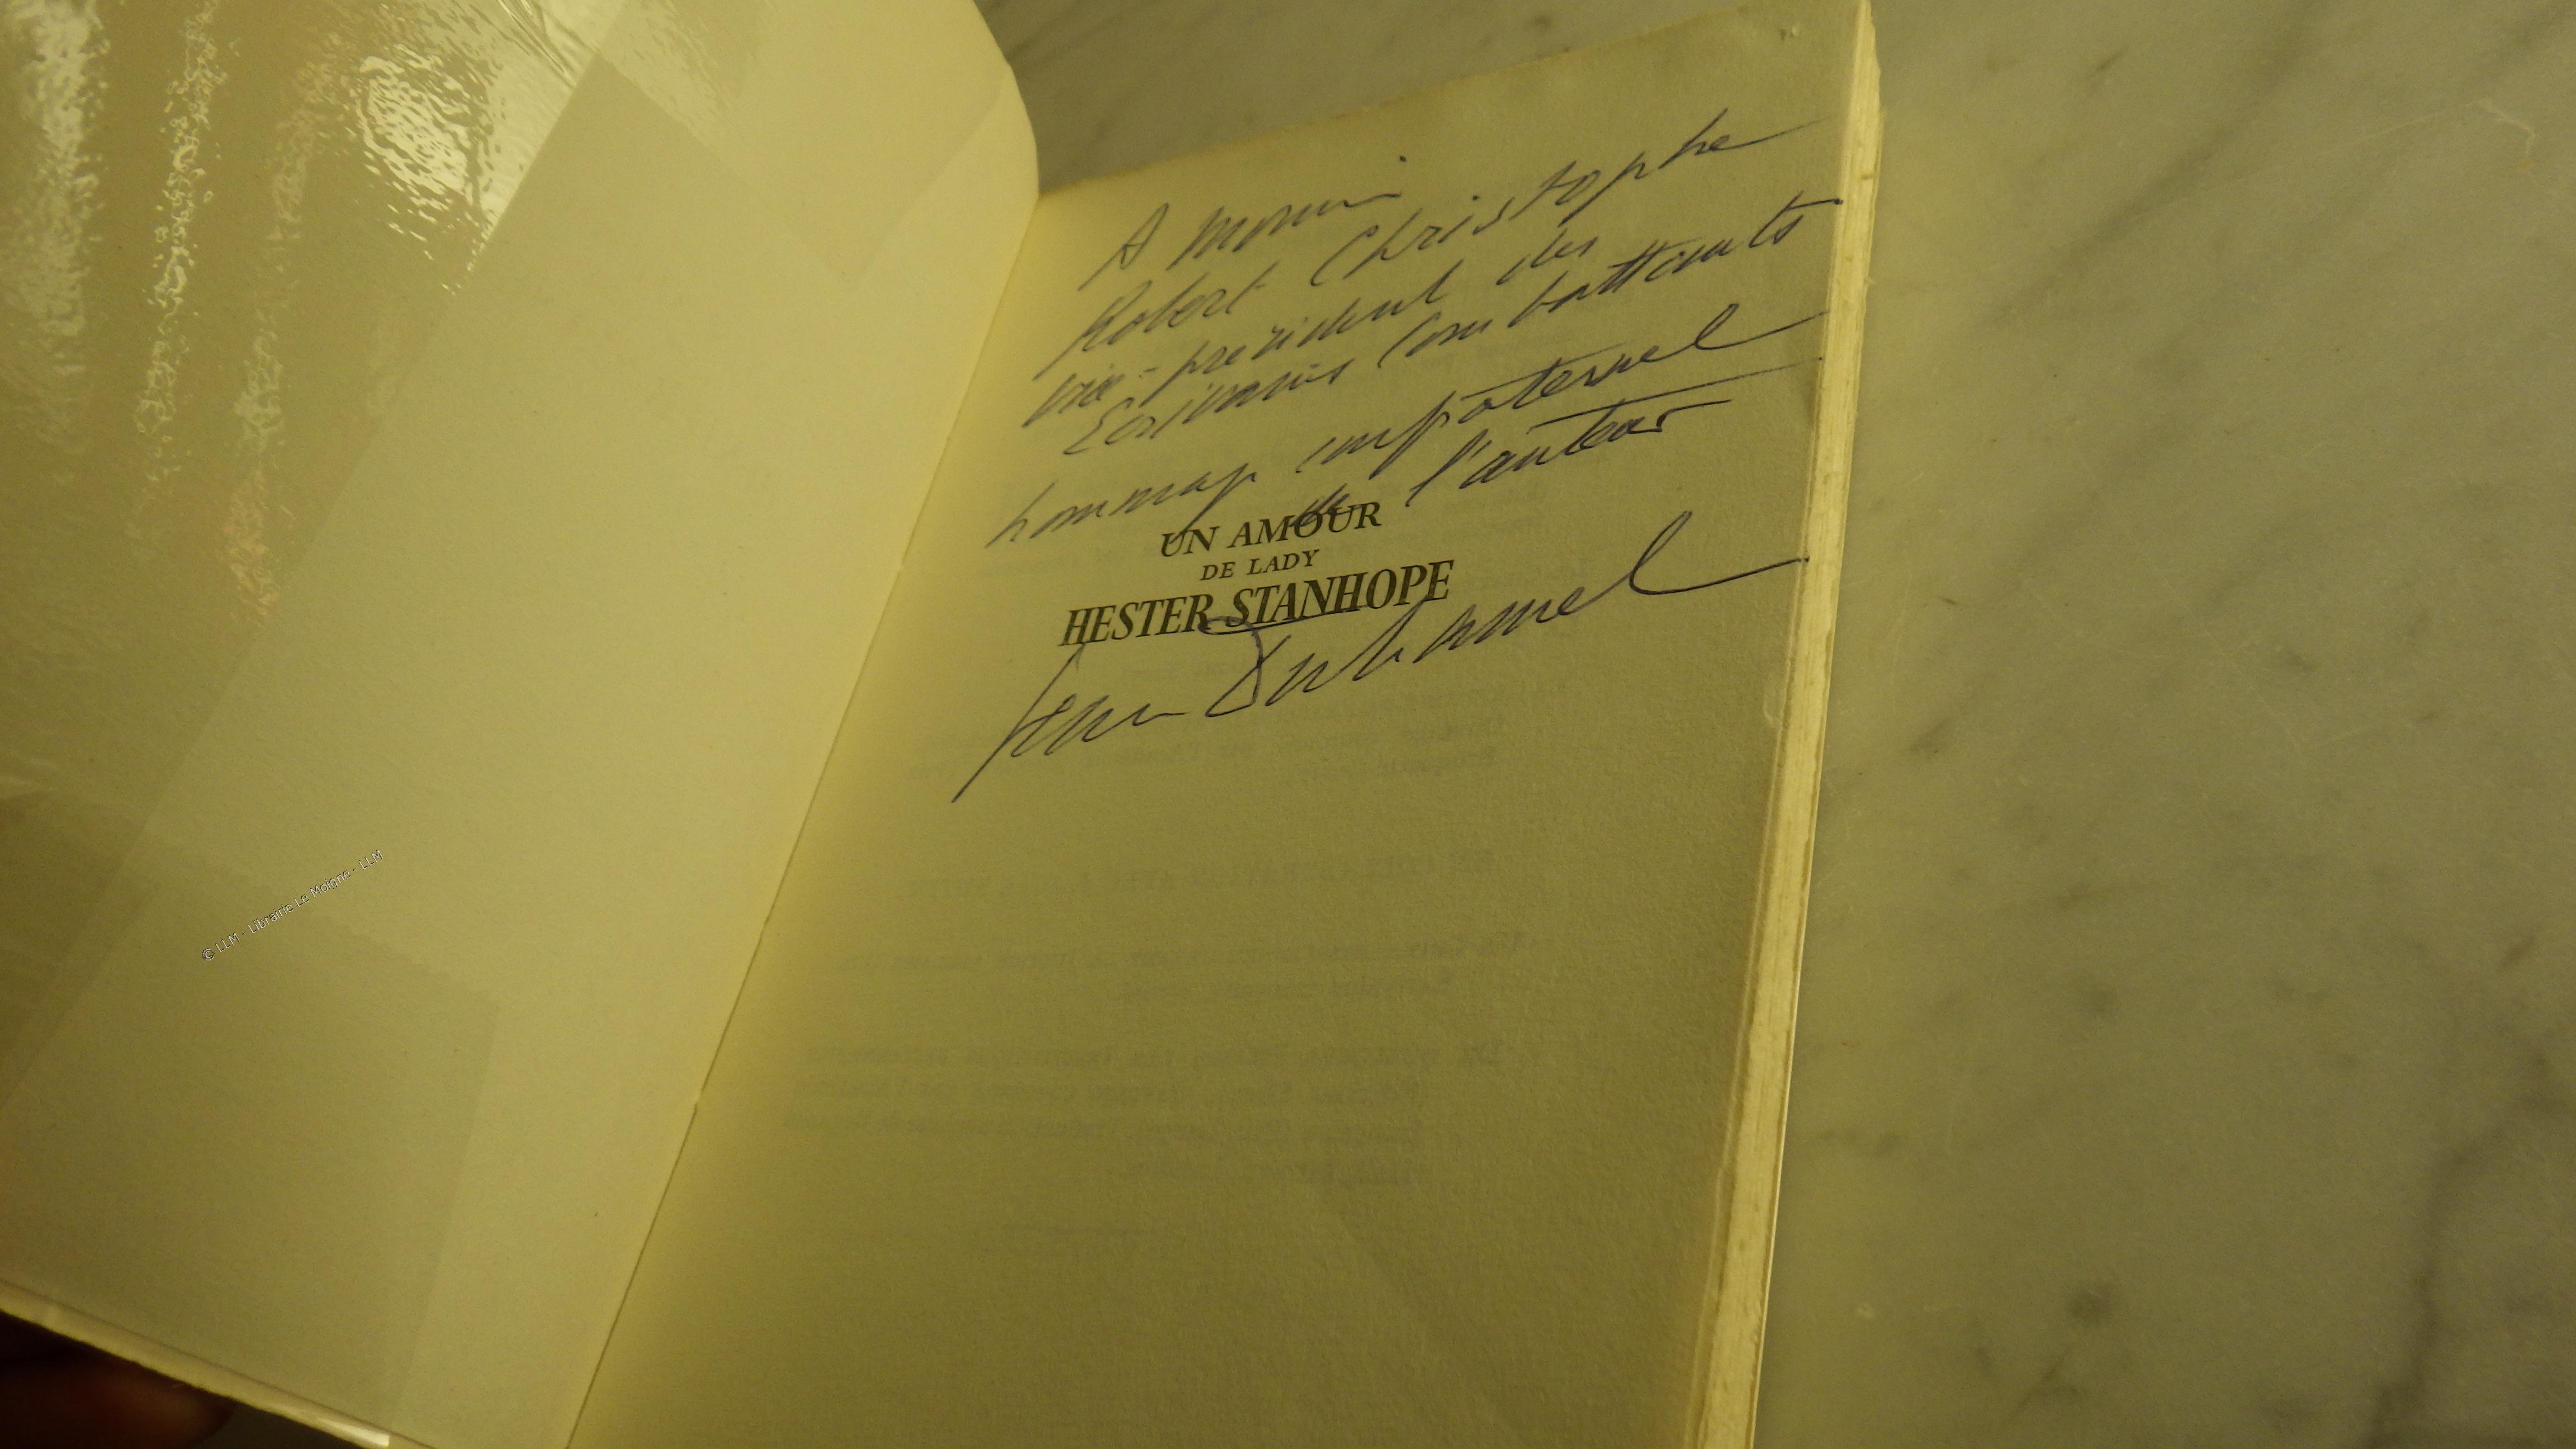 A Monsieur
Robert Christophe
vice-président des
Ecrivains Combattants
hommage confraternel
de l'auteur
UN AMOUR
DE LADY
HESTER STANHOPE
Jean Duhamel
© LLM - Librairie Le Moigne - LLM